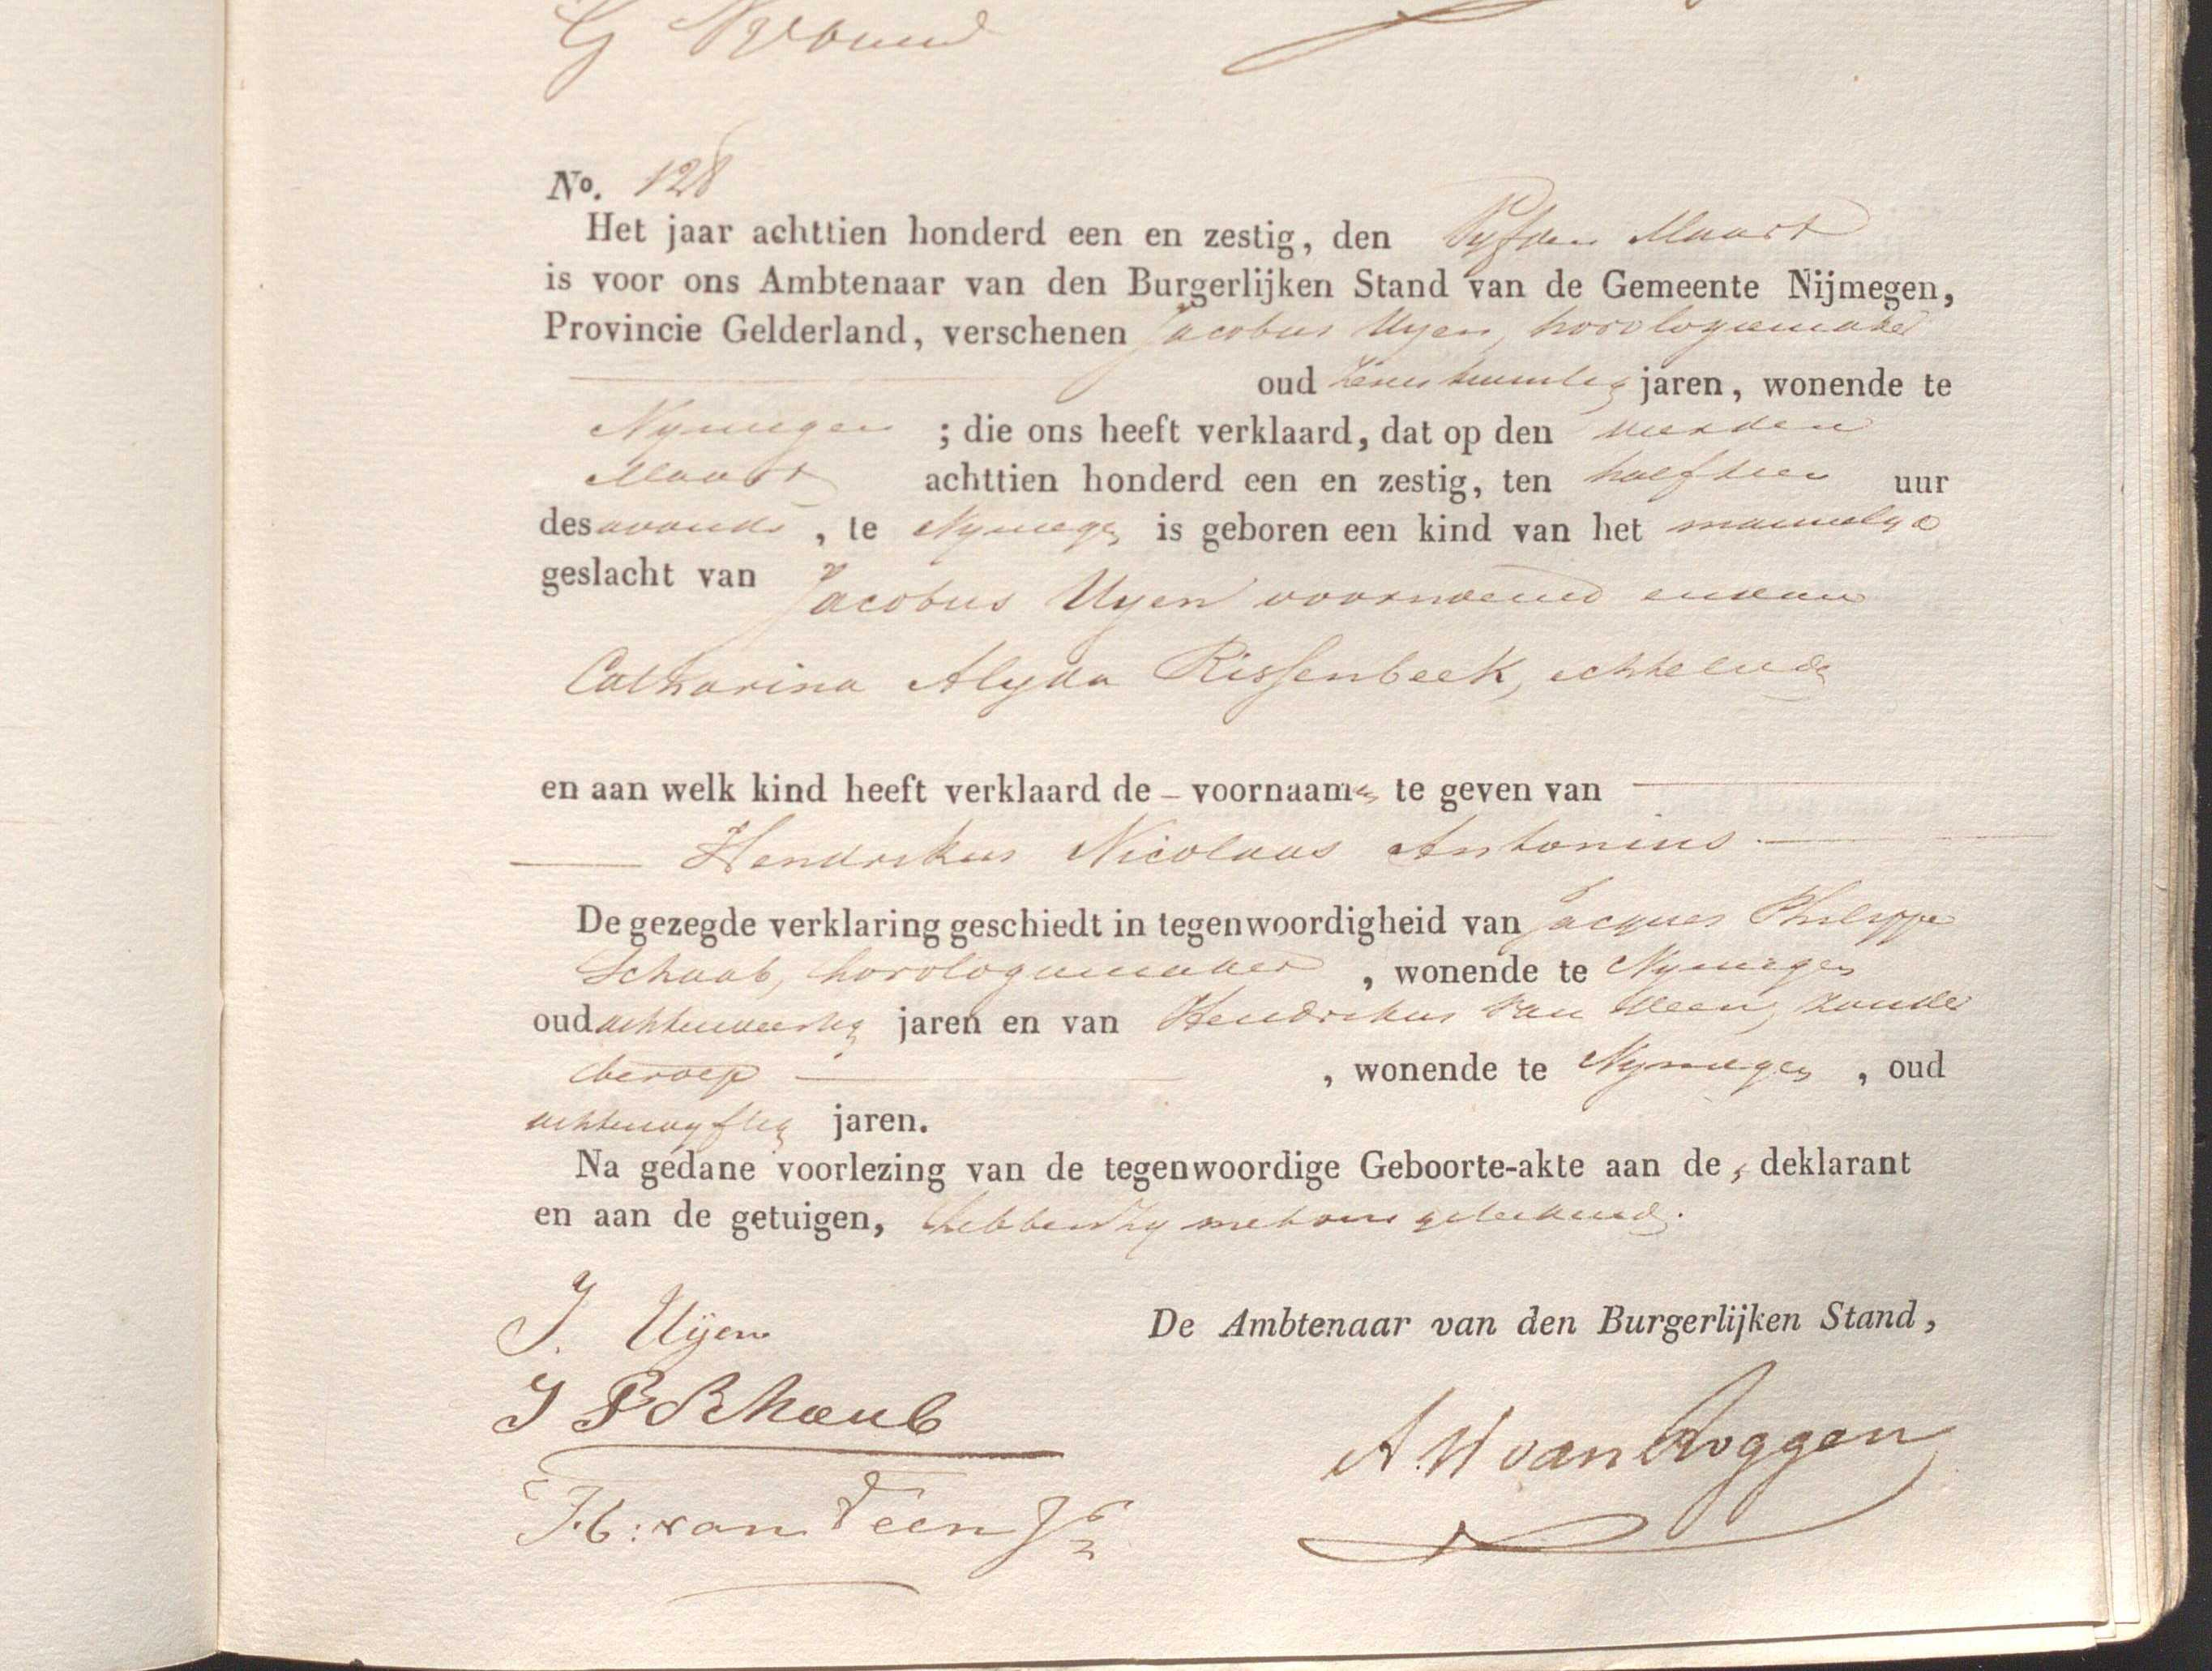 No. 128
Het jaar achttien honderd een en zestig, den Vyfden Maart
is voor ons Ambtenaar van den Burgerlijken Stand van de Gemeente Nijmegen,
Provincie Gelderland, verschenen Jacobus Uyen, horologiemaker
oud jaren, wonende te
Nymegen ; die ons heeft verklaard, dat op den vierden
Maart achttien honderd een en zestig, ten half tien uur
des avonds, te Nymegen is geboren een kind van het mannelyke
geslacht van Jacobus Uyen voornoemd en van
Catharina Alyda Rissenbeek, echtelieden
en aan welk kind heeft verklaard de – voornaamen te geven van
Hendrikus Nicolaas Antonius
De gezegde verklaring geschiedt in tegenwoordigheid van Jacques Philippe
Schaub, horologiemaker, wonende te Nymegen
oud achtenveertig jaren en van Hendrikus van Veen, zonder
beroep , wonende te Nymegen, oud
achtenvyftig jaren.
Na gedane voorlezing van de tegenwoordige Geboorte-akte aan de deklarant
en aan de getuigen, hebben zy met ons geteekend.
J. Uÿen
De Ambtenaar van den Burgerlijken Stand,
J P Schaub
A W van Roggen
H: van Veen Jr